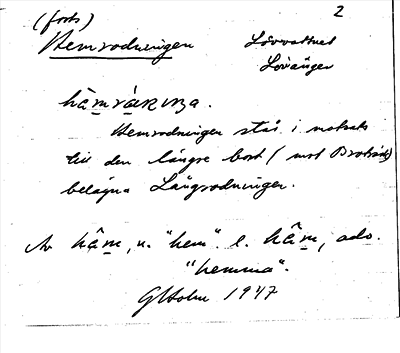 (forts)
2
Hemrodningen
Lövvattnet
Lövånger
hâm
Hemrodningen står i motsats
till den längre bort (mot Broträsk)
belägna Långrodningen.
Av hâm, n. "hem" l. hâm, adv.
"hemma".
GHolm 1947